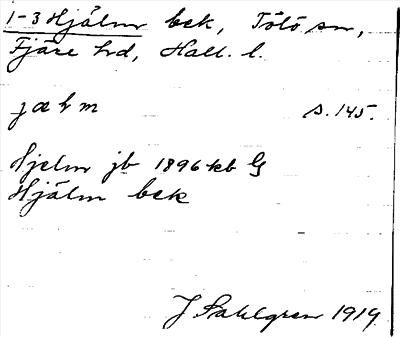 1-3 Hjälm bck, Tölö sn,
Fjäre hd, Hall. l.
jæłm s. 145.
Hjelm jb 1896 kb G
Hjälm bck
J Sahlgren 1919